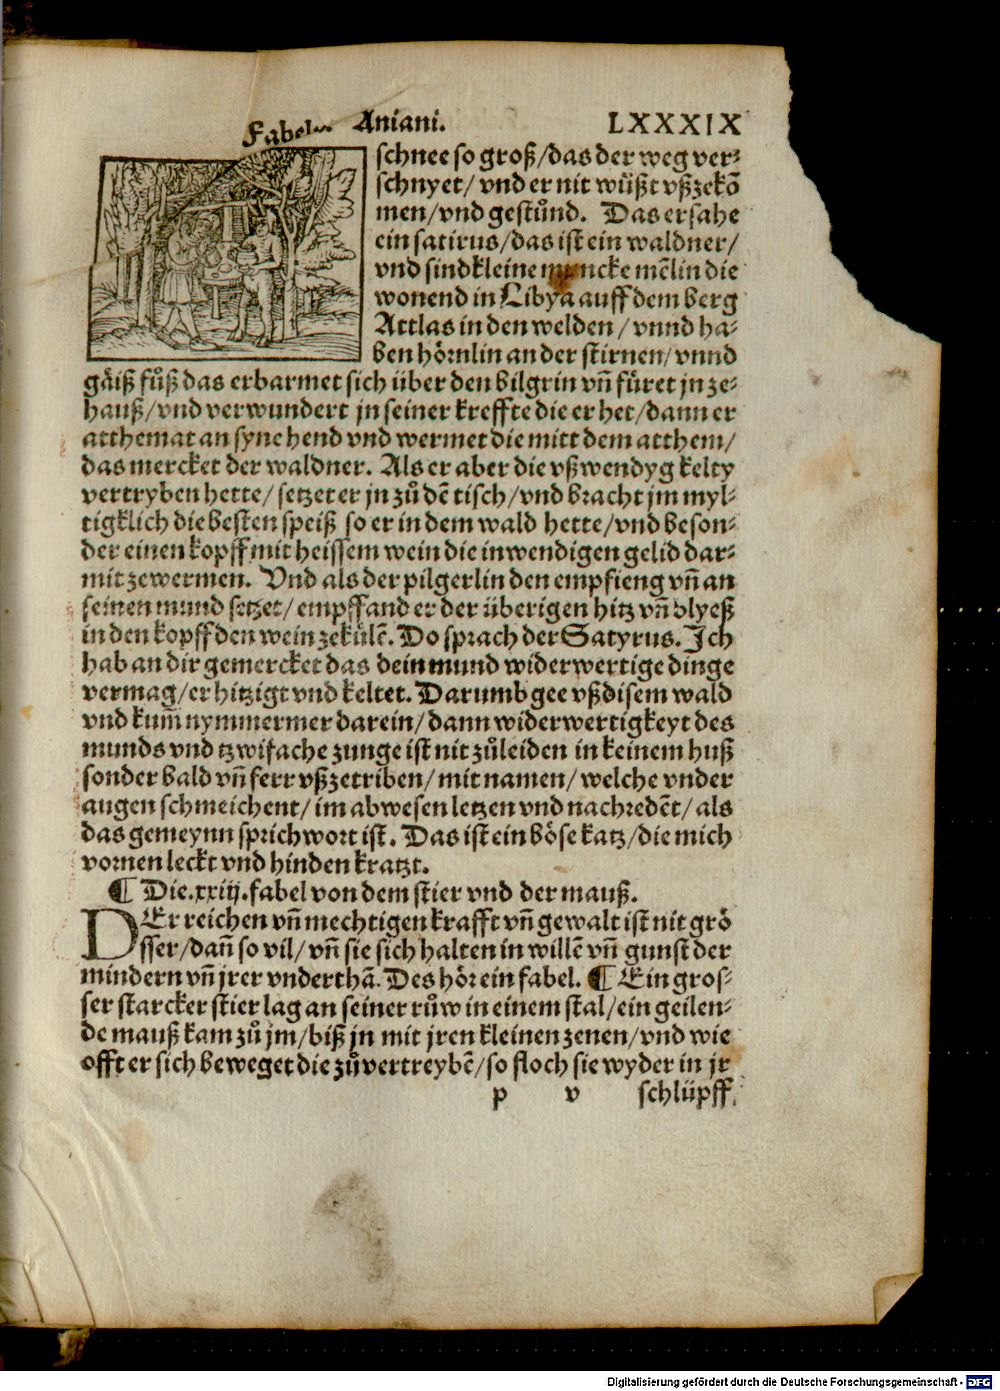 Fabeln Aniani. LXXXIX
schnee so groß/das der weg ver⸗
schnyet/ vnd er nit wüßt vßzekō
men/vnd gestůnd. Das ersahe
ein satirus/das ist ein waldner/
vnd sind kleine mencke mēlin die
wonend in Libya auff dem berg
Attlas in den welden/ vnnd ha⸗
ben hörnlin an der stirnen/ vnnd
gäiß fůß das erbarmet sich über den bilgrin vñ füret jn ze⸗
hauß/vnd verwundert jn seiner kreffte die er het/dann er
atthemat an syne hend vnd wermet die mitt dem atthem/
das mercket der waldner. Als er aber die vßwendyg kelty
vertryben hette/ setzet er jn zů dē tisch/vnd bracht jm myl⸗
tigklich die besten speiß so er in dem wald hette/vnd beson⸗
der einen kopff mit heissem wein die inwendigen gelid dar⸗
mit zewermen. Vnd als der pilgerlin den empfieng vñ an
seinen mund setzet/ empffand er der überigen hitz vñ blyeß
in den kopff den wein zekülē. Do sprach der Satyrus. Ich
hab an dir gemercket das dein mund widerwertige dinge
vermag/er hitzigt vnd keltet. Darumb gee vß disem wald
vnd kum̄ nymmermer darein/ dann widerwertigkeyt des
munds vnd tzwifache zunge ist nit zůleiden in keinem huß
sonder bald vñ ferr vßzetriben/ mit namen/ welche vnder
augen schmeichent/ im abwesen letzen vnd nachredēt/ als
das gemeynn sprichwort ist. Das ist ein böse katz/die mich
vornen leckt vnd hinden kratzt.
¶ Die.xxiij.fabel von dem stier vnd der mauß.
DEr reichen vñ mechtigen krafft vñ gewalt ist nit grö
sser/dañ so vil/ vñ sie sich halten in willē vñ gunst der
mindern vñ jrer vnderthā. Des hör ein fabel. ¶ Ein gros⸗
ser starcker stier lag an seiner růw in einem stal/ein geilen⸗
de mauß kam zů jm/biß jn mit jren kleinen zenen/vnd wie
offt er sich beweget die zůvertreybē/so floch sie wyder in jr
p v schlüpff.
Digitalisierung gefördert durch die Deutsche Forschungsgemeinschaft - DFG